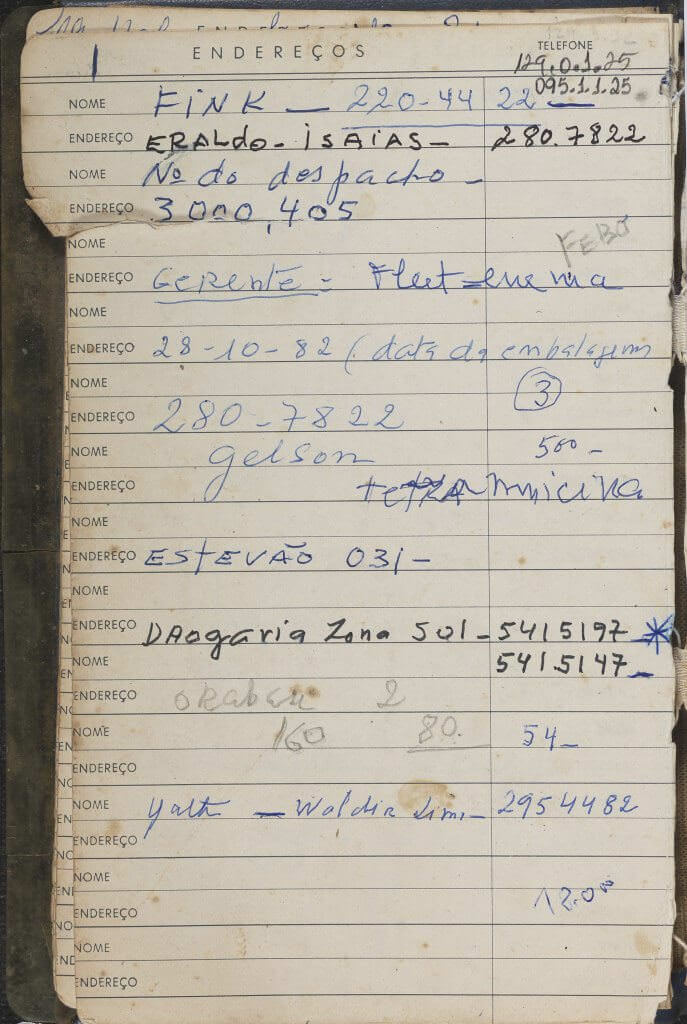 ENDEREÇOS
TELEFONE
129.0.1.25
095.1.1.25
NOME FINK — 220-44 22 —
ENDEREÇO ERALDO - ISAIAS - 280.7822
NOME Nº do despacho -
ENDEREÇO 3000,405
NOME
FEBO
ENDEREÇO Gerente = Fleet-enema
NOME
ENDEREÇO 28-10-82 (data da embalagem
NOME
3
ENDEREÇO 280-7822
NOME Gelson 500 -
ENDEREÇO
NOME
ENDEREÇO ESTEVÃO 031-
NOME
ENDEREÇO DROgaria Zona Sul - 5415197
NOME 541.5147
ENDEREÇO 2
NOME 160 80. 54-
ENDEREÇO
NOME — Waldir 2954482
ENDEREÇO
NOME
ENDEREÇO 12.000
NOME
ENDEREÇO